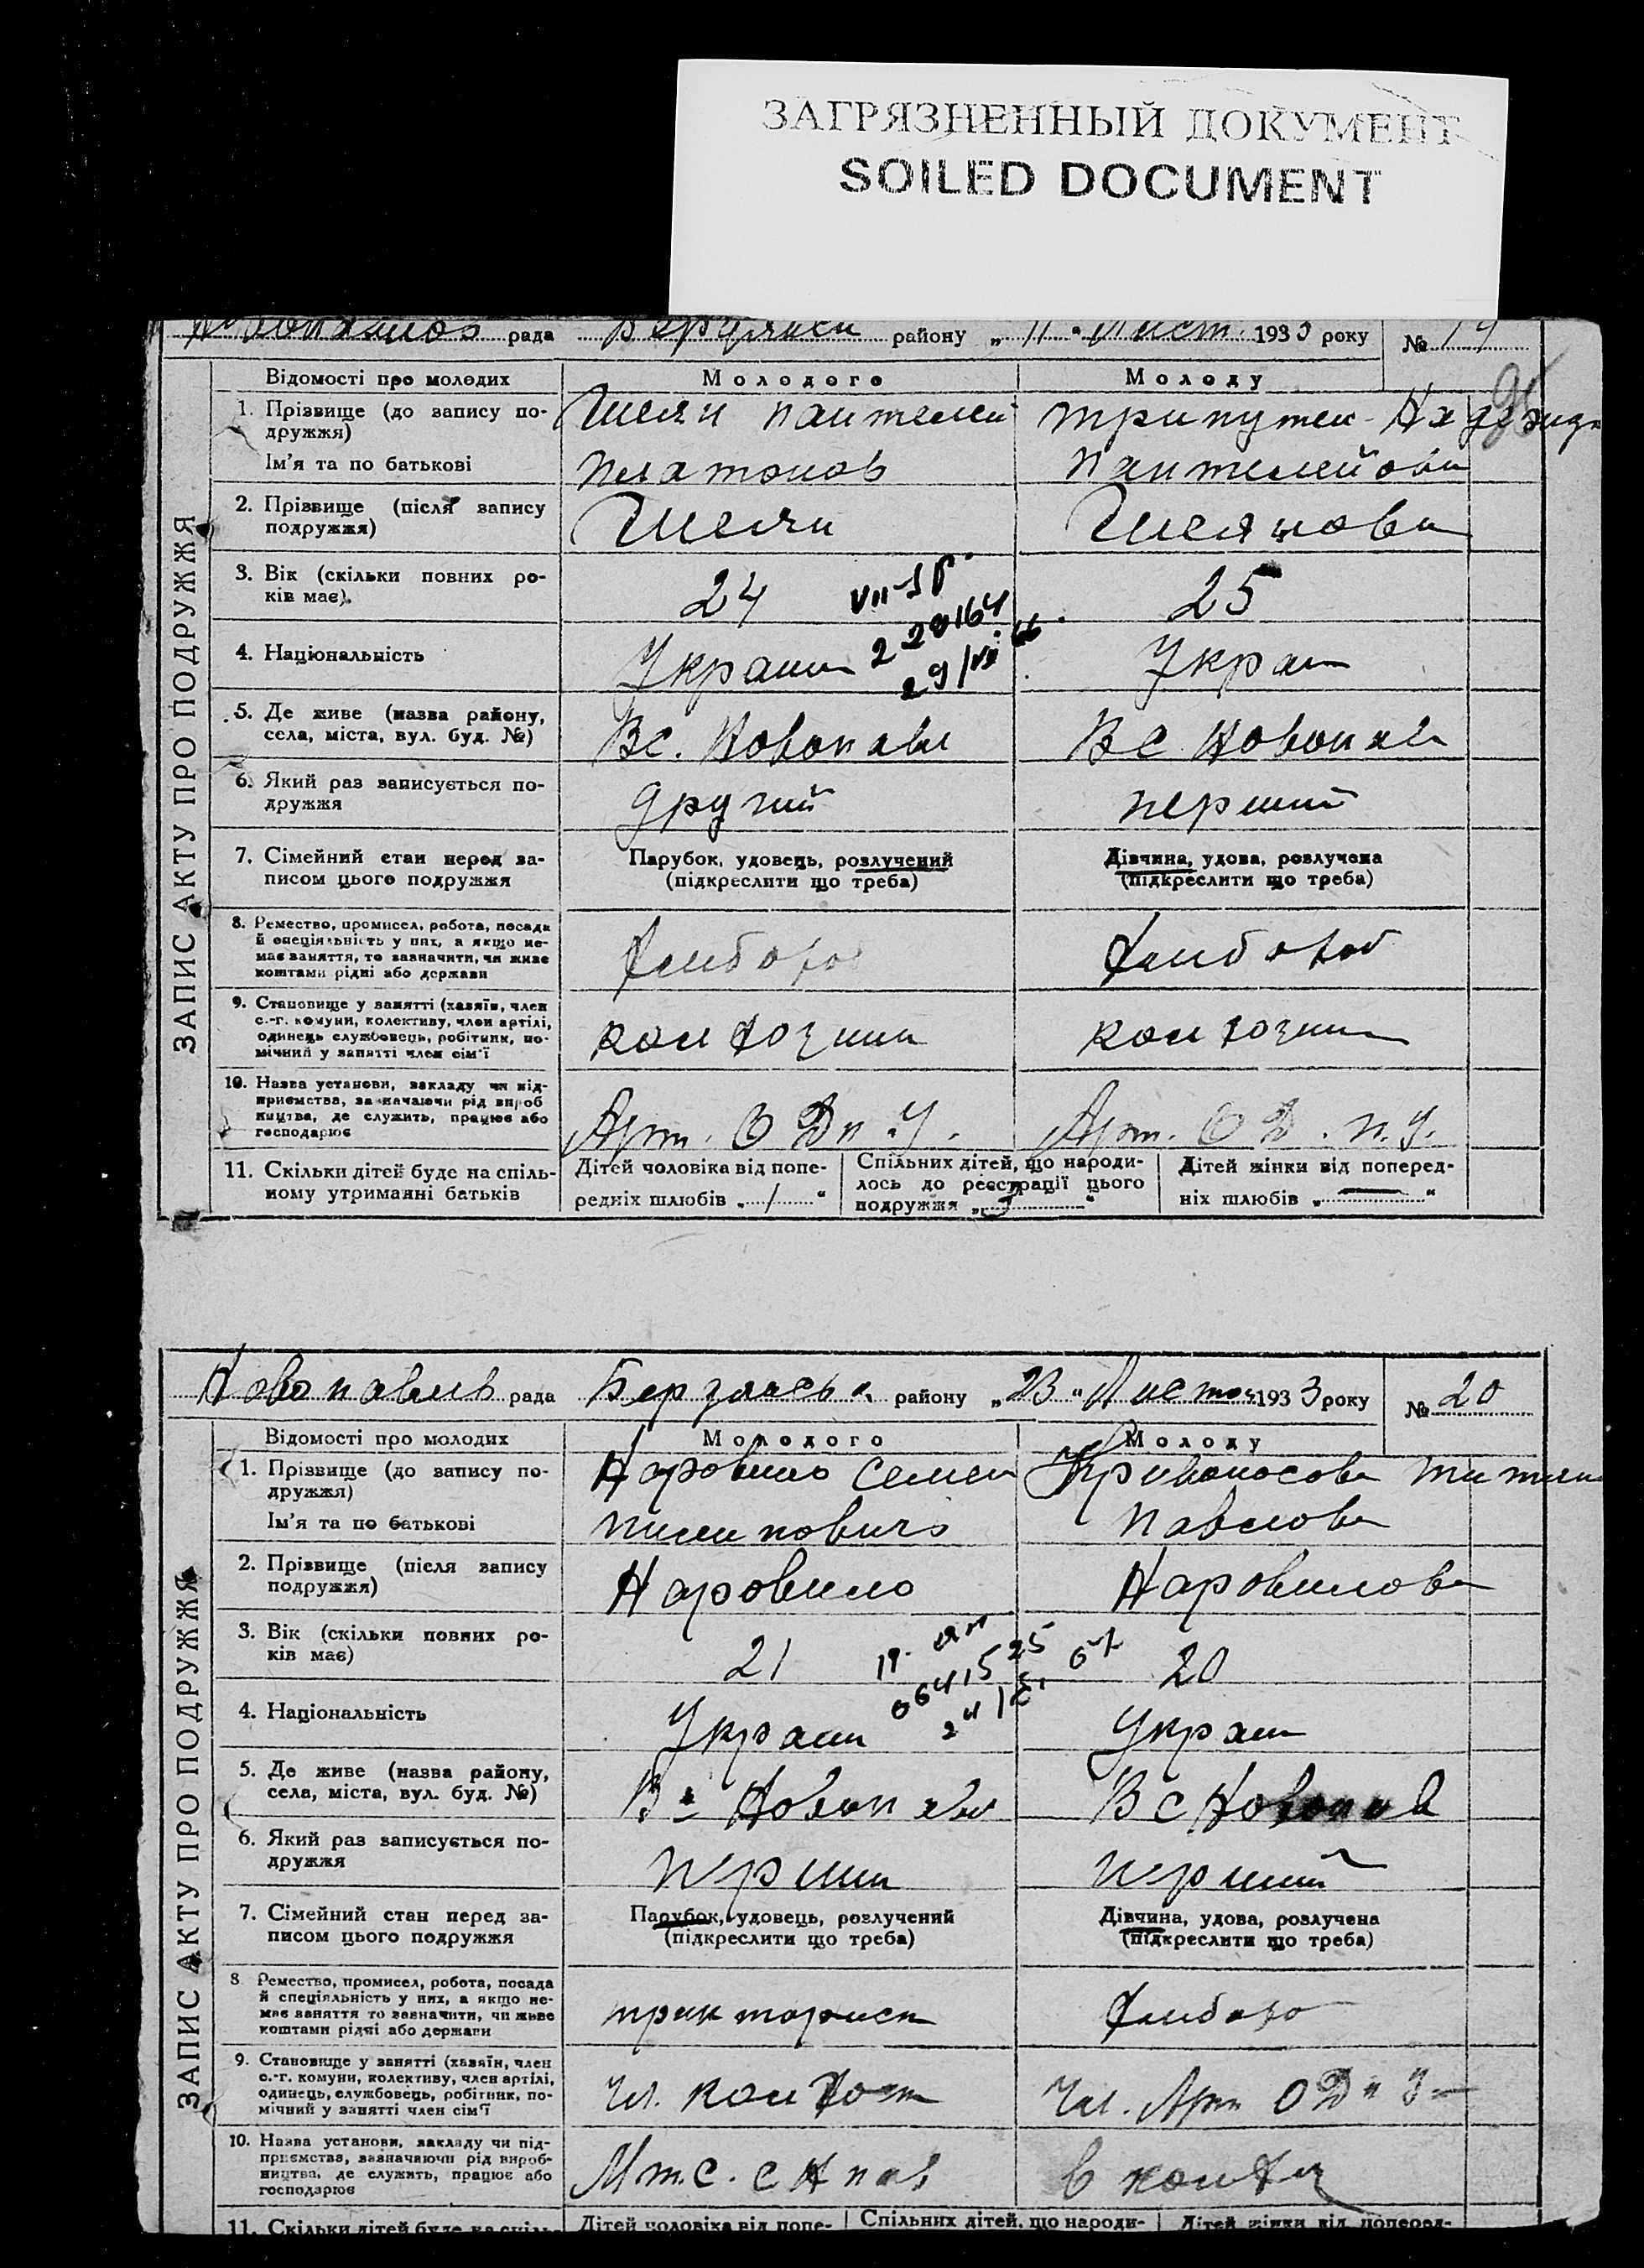 ЗАГРЯЗНЕННЫЙ ДОКУМЕНТ
SOILED DOCUMENT
рада району „ 11 “ Лист. 1933 року №
ЗАПИС АКТУ ПРО ПОДРУЖЖЯ
Відомості про молодих Молодого Молоду
1. Прізвище (до запису по-
дружжя)
Пантелей
Ім'я та по батькові Платонов Пантелейовн
2. Прізвище (після запису
подружжя)
3. Вік (скільки повних ро-
ків має). 24 25
220164
29/VII 66
4. Національність Украин Украи
5. Де живе (назва району,
села, міста, вул. буд. №) Вс. Новопавл ВС Новопав
6. Який раз записується по-
дружжя другий перший
7. Сімейний стан перед за-
писом цього подружжя
Парубок, удовець, розлучений
(підкреслити що треба)
Дівчина, удова, розлучена
(підкреслити що треба)
8. Ремество, промисел, робота, посада
й спеціяльність у них, а якщо не-
має заняття, то зазначити, чи живе
коштами рідні або держави
хлібороб хлібороб
9. Становище у занятті (хазяїн, член
с.-г. комуни, колективу, член артілі,
одинець службовець, робітник, по-
мічний у занятті член сім'ї
колхозник колхозник
10. Назва установи, закладу чи під-
приємства, зазначаючи рід вироб
ництва, де служить, працює або
господарює
Арт. О Д п. У. Арт. О Д. П. У.
11. Скільки дітей буде на спіль-
ному утриманні батьків
Дітей чоловіка від попе-
редніх шлюбів „ 1 “
Спільних дітей, що народи-
лось до реєстрації цього
подружжя „ “
Дітей жінки від поперед-
ніх шлюбів „ — “
Новопавлів рада Бердянськ району „ 23 “ Листоп 1933 року № 20
ЗАПИС АКТУ ПРО ПОДРУЖЖЯ
Відомості про молодих Молодого Молоду
1. Прізвище (до запису по-
дружжя)
Наровило Семен Кривоносова Титяна
Ім'я та по батькові Павлова
2. Прізвище (після запису
подружжя) Наровило Наровилова
3. Вік (скільки повних ро-
ків має) 21 20
4. Національність Украин Украин
5. Де живе (назва району,
села, міста, вул. буд. №) Вс Новопавл ВС Новопав
6. Який раз записується по-
дружжя перший перший
7. Сімейний стан перед за-
писом цього подружжя
Парубок, удовець, розлучений
(підкреслити що треба)
Дівчина, удова, розлучена
(підкреслити що треба)
8 Ремество, промисел, робота, посада
й спеціяльність у них, а якщо не-
має заняття то зазначити, чи живе
коштами рідні або держави
тракторист хлібороб
9. Становище у занятті (хазяїн, член
с.-г. комуни, колективу, член артілі,
одинець, службовець, робітник, по-
мічний у занятті член сім'ї
Чл. колхозн Чл. Арт О Д п У
10. Назва установи, закладу чи під-
приємства, зазначаючи рід вироб-
ництва, де служить, працює або
господарює
М.т.С. с Н пав в колхозі
11. Скільки дітей буде на спіль-
Дітей чоловіка від попе-
Спільних дітей, що народи-
Дітей жінки від поперед-